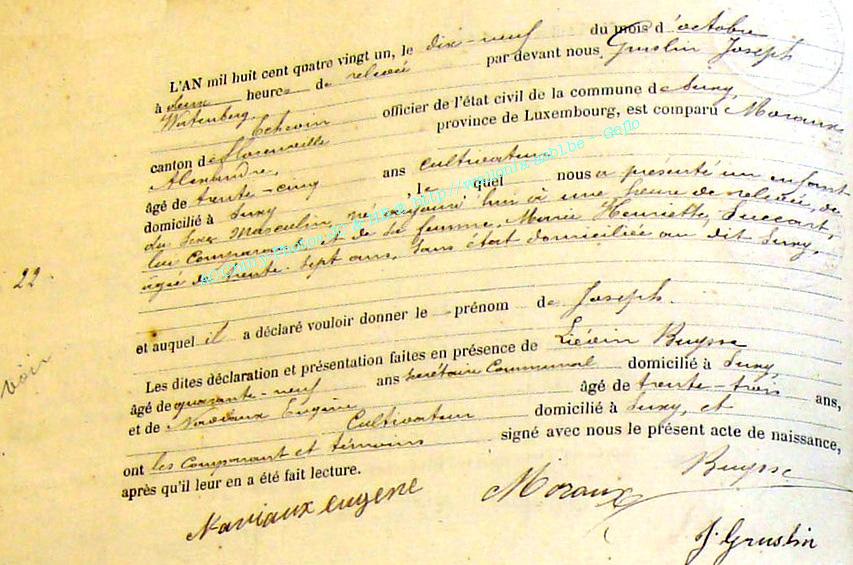 L'AN mil huit cent quatre vingt un, le dix-neuf du mois d'octobre
à deux heures de relevée par devant nous Gruslin Joseph
Echevin officier de l'état civil de la commune de Suxy,
canton de Florenville province de Luxembourg, est comparu Moraux
Alexandre,
âgé de trente-cinq ans cultivateur
domicilié à Suxy, le quel nous a présenté un enfant
du sexe masculin, né aujourd'hui à une heure de relevée, de
lui comparant et de sa femme, Marie Henriette,
agée de trente-sept ans, sans état domiciliée au dit Suxy,
22
et auquel il a déclaré vouloir donner le prénom de Joseph.
voir
Les dites déclaration et présentation faites en présence de Liévin Buysse
âgé de quarante-neuf ans secrétaire Communal domicilié à Suxy,
et de Naviaux Eugène âgé de trente-trois ans,
Cultivateur domicilié à Suxy, et
ont les Comparant et témoins signé avec nous le présent acte de naissance,
après qu'il leur en a été fait lecture.
Naviaux eugene Moraux Buysse
J. Gruslin